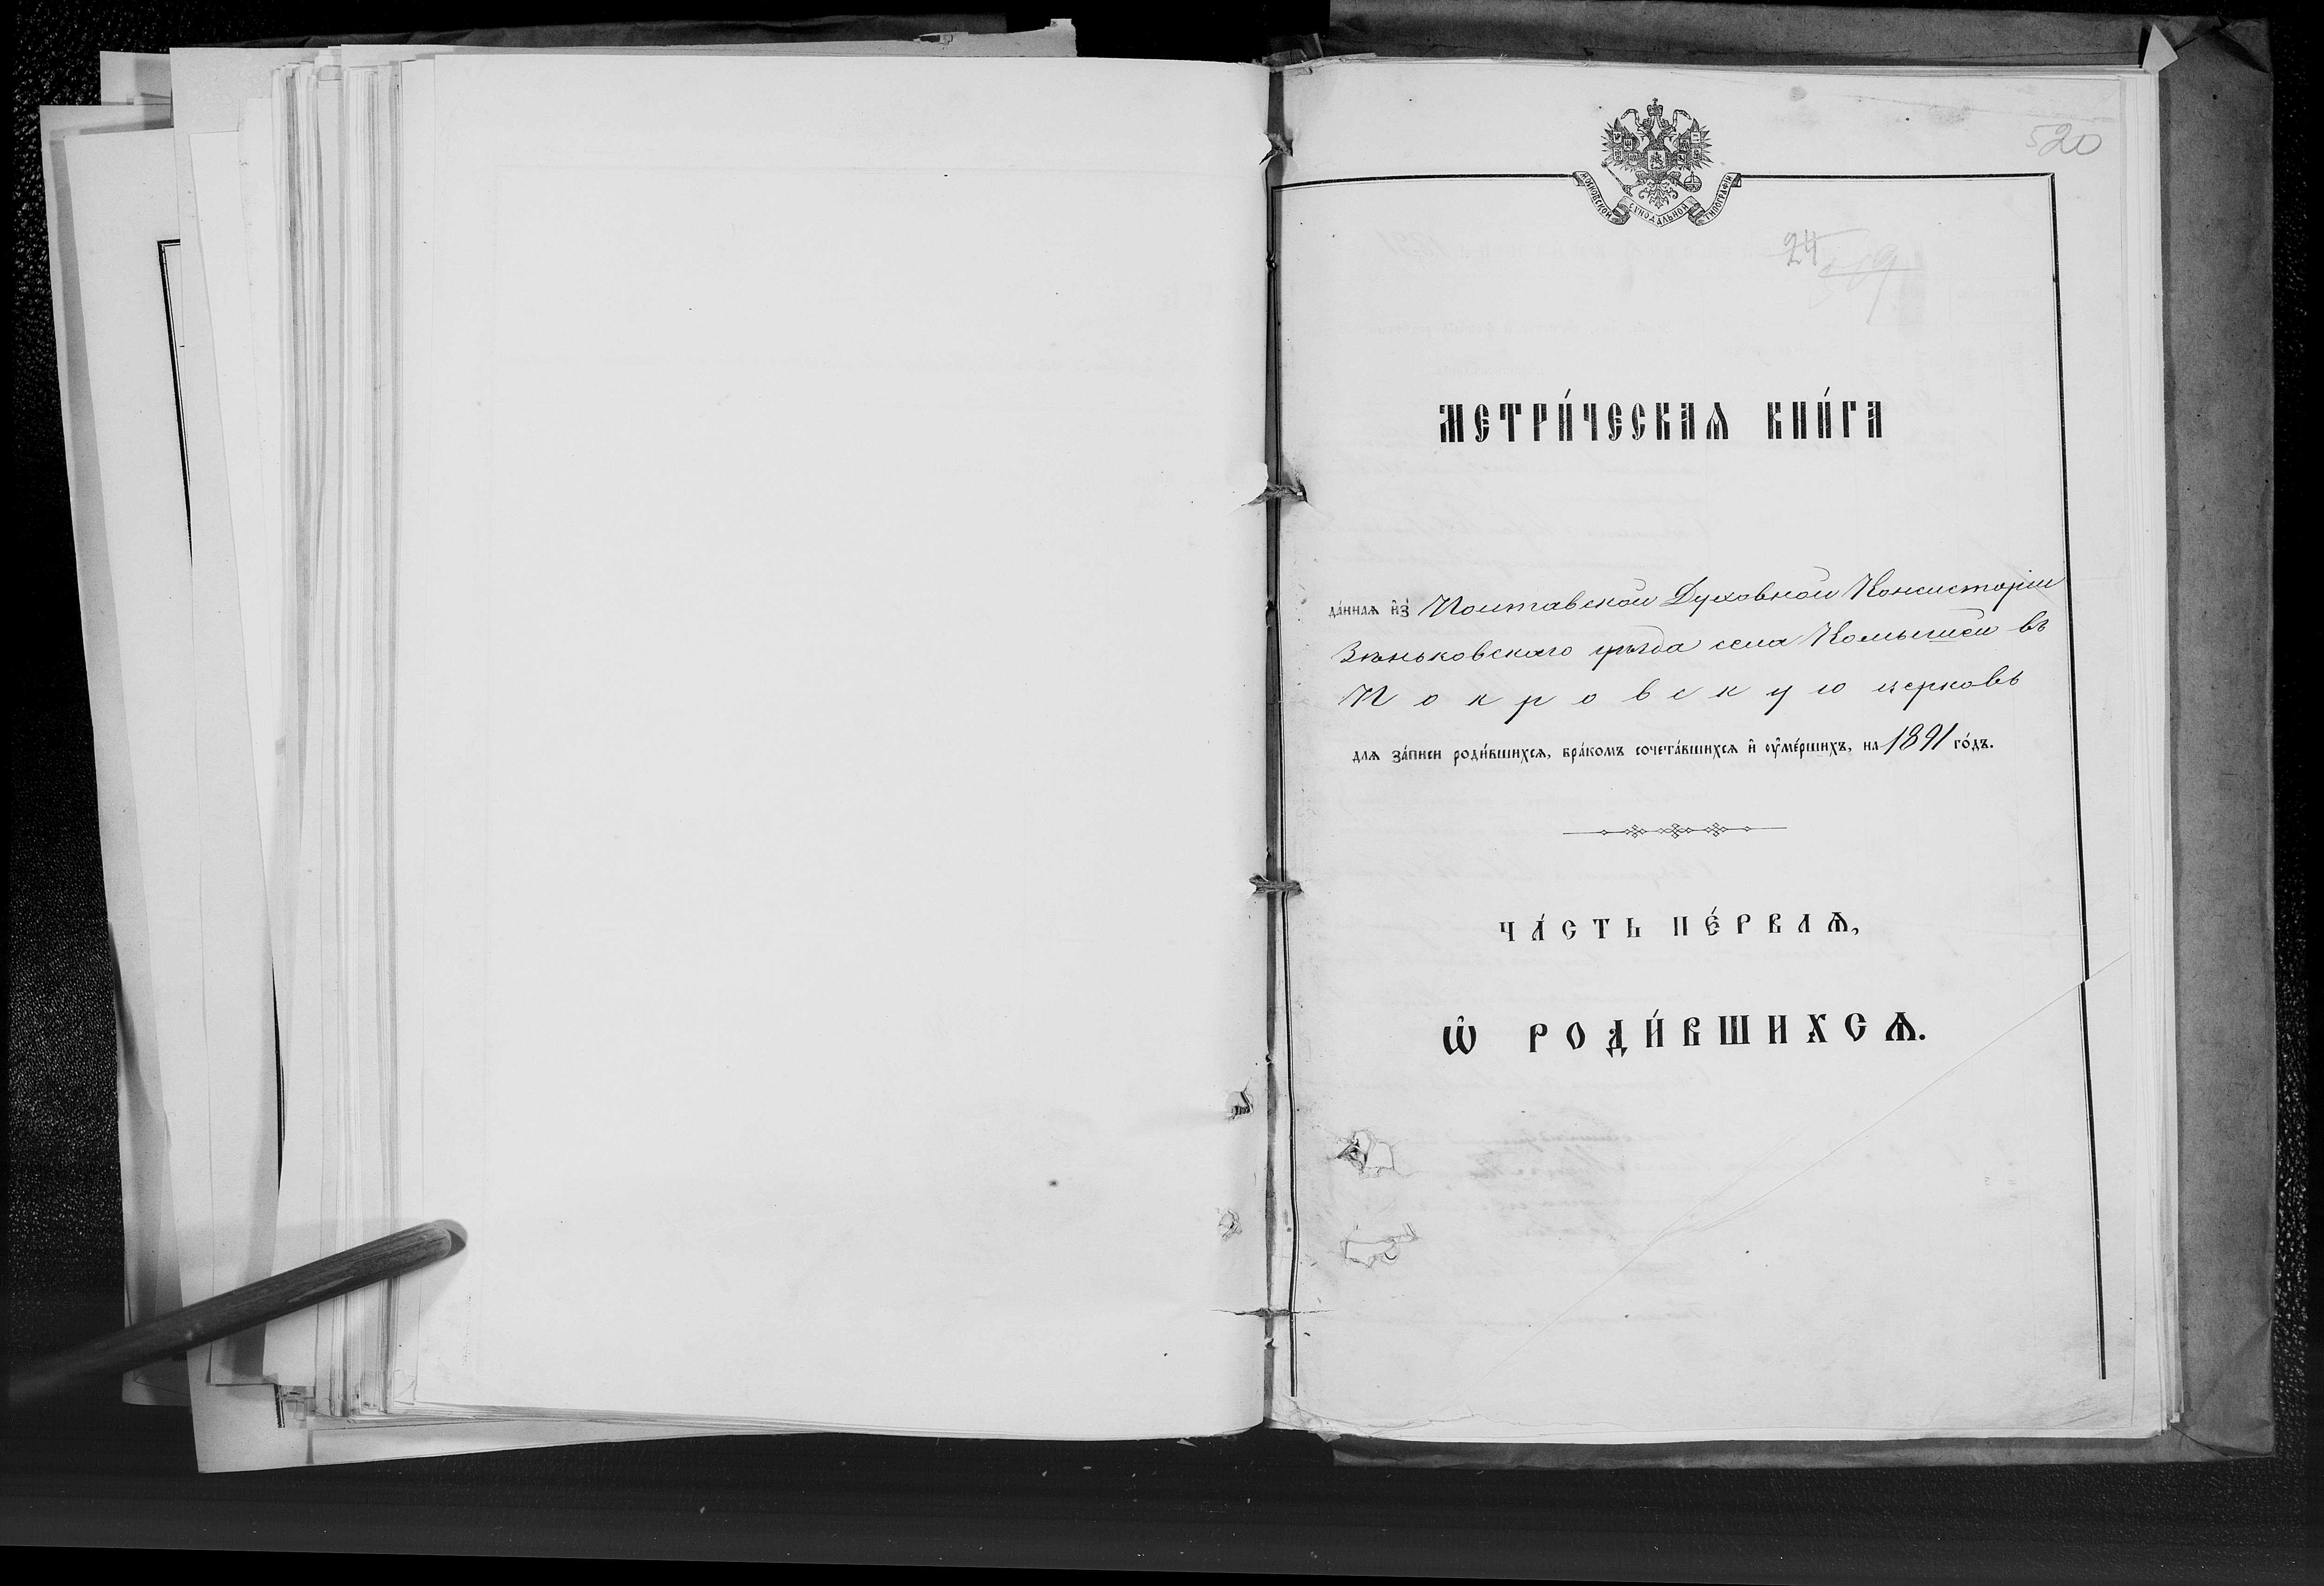 520
МОСКОВСКОЙ СѴНОДАЛЬНОЙ ТИПОГРАФІИ
24
519
МЕТРИ́ЧЕСКАѦ КНИ́ГА
да́ннаѧ и҆з̾ Полтавской Духовной Консисторіи
Зѣньковскаго уѣзда села Комышей въ
Покровскую церковь
длѧ за́писи роди́вшихсѧ, бра́комъ сочета́вшихсѧ и҆ ᲂу҆ме́ршихъ, на 1891 го́дъ.
ЧА́СТЬ ПЕ́РВАѦ,
Ѡ҆ РОДИ́ВШИХСѦ.